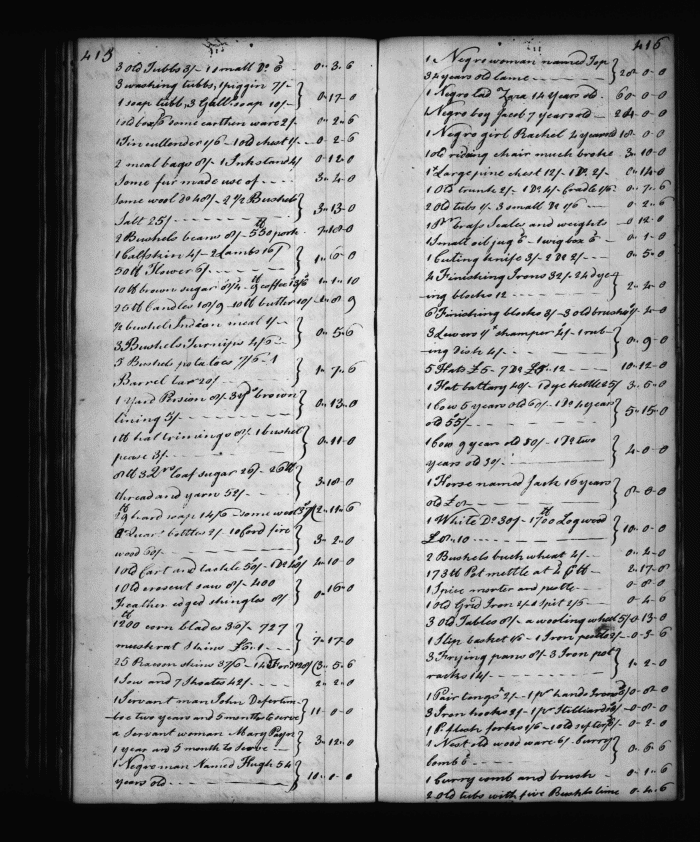 415
3 old Tubbs 3/- 1 small Do 6 0"3"6
3 washing tubbs, 1 piggin 7/-
1 soap tubb, 3 Gall soap 10/- 0"17"0
1 old box /6 some earthen ware 2/- 0"2"6
1 Tin cullender 1/6 - 1 old chest 1/- 0"2"6
2 meal bags 8/- 1 Inkstand 4/ 0"12"0
Some fur made use of 3"4"0
Some wool do 48/- 2 1/2 Bushels
Salt 25/ 3"13"0
2 Bushels beans 8/- 550 lb pork 7"18"0
1 Calfskin 4/- 2 Lambs 16/
50 lb Flower 6/- 1"6"0
10 lb brown sugar 8/4 - 9 lb coffee 13/6 1"1"10
25 lb Candles 18/9 - 10 lb butter 10/- 1"8"9
1/2 bushel Indian meal 1/-
3 Bushels Turnips 4/6 0"5"6
5 Bushels potatoes 7/6 1
Barrel tar 20/ 1"7"6
1 yard Persion 8/- 3 yds brown
lining 5/- 0"13"0
1 lb hat trimings 8/- 1 bushel
pease 3/- 0"11"0
8 lb 3 Qrs loaf sugar 26/- 26 lb
thread and yarn 52/- 3"18"0
19 lb hard soap 14/6 - some wool 2"11"6
8 Quart bottles 2/- 10 Cord fire
wood 60/- 3"2"0
1 old Cart and tackle 50/- Do 40/ 4"10"0
1 Old croscut saw 8/- 400
Feather edged shingles 8/ 0"16"0
1200 lb corn blades 36/- 727
muskrat skins £6"1 7"17"0
25 Racoon skins 37/6 - 14 3"5"6
1 Sow and 7 Shoats 42/- 2"2"0
1 Servant man John
two years and 5 months to serve 11"0"0
a Servant woman Mary Payn
1 year and 5 month to serve 3"12"0
1 Negro man Named Hugh 54
years old 10"0"0
416
1 Negro woman named
34 years old lame 20"0"0
1 Negro lad Zara 14 years old 60"0"0
1 Negro boy Jacob 7 years old
1 Negro girl Rachel 4 years 18"0"0
1 old riding chair much broke 3"10"0
1 Large pine chest 12/- 1 Do 2/- 0"14"0
1 Old trunk 2/- 1 Do 4/- Cradle 1/6 0"7"6
2 Old tubs 1/- 3 small Do 1/6 0"2"6
1 Pr brass Scales and weights 0"12"0
1 Small oil jug 6 - 1 wig box 6 0"1"0
1 Cuting knife 3/- 2 Do 2/- 0"5"0
4 Finishing Irons 32/- 24 dye-
ing blocks 12 2"4"0
6 Finishing blocks 3/- 3 old brushes
3 Lewers 1/ stamper 4/- 1 rub-
ing dish 4/- 0"9"0
5 Hats £5 - 7 Do £5"12 10"12"0
1 Hat battary 40/- 1 dye kettle 25/ 3"5"0
1 Cow 5 years old 60/- 1 Do 4 years
old 55/ 5"15"0
1 Cow 9 years old 50/- 1 Do two
years old 30/- 4"0"0
1 Horse named Jack 16 years
old £8 8"0"0
1 White Do 30/- 1700 lb Logwood
£8"10 10"0"0
2 Bushels buck wheat 4/- 0"4"0
173 lb Pot mettle at 4 2"17"8
1 Spice morter and pestle 0"8"0
1 Old Grid Iron 2/- 1 Spit 2/6 0"4"6
3 Old Tables 8/- a wooling wheel 5/ 0"13"0
1 Slip basket 1/6 - 1 Iron pestle 2/- 0"3"6
3 Frying pans 8/- 3 Iron pot
racks 14/- 1"2"0
1 Pair tongs 2/- 1 pr hand Irons 6/ 0"8"0
3 Iron hooks 2/- 1 pr Stilliards 6/ 0"8"0
1 flesh forks 1/6 - 1 old 0"2"0
1 Nest old wood ware 6/- Curry
comb 6 0"6"6
1 Curry comb and brush 0"1"6
2 Old tubs with five Bushls lime 0"4"6